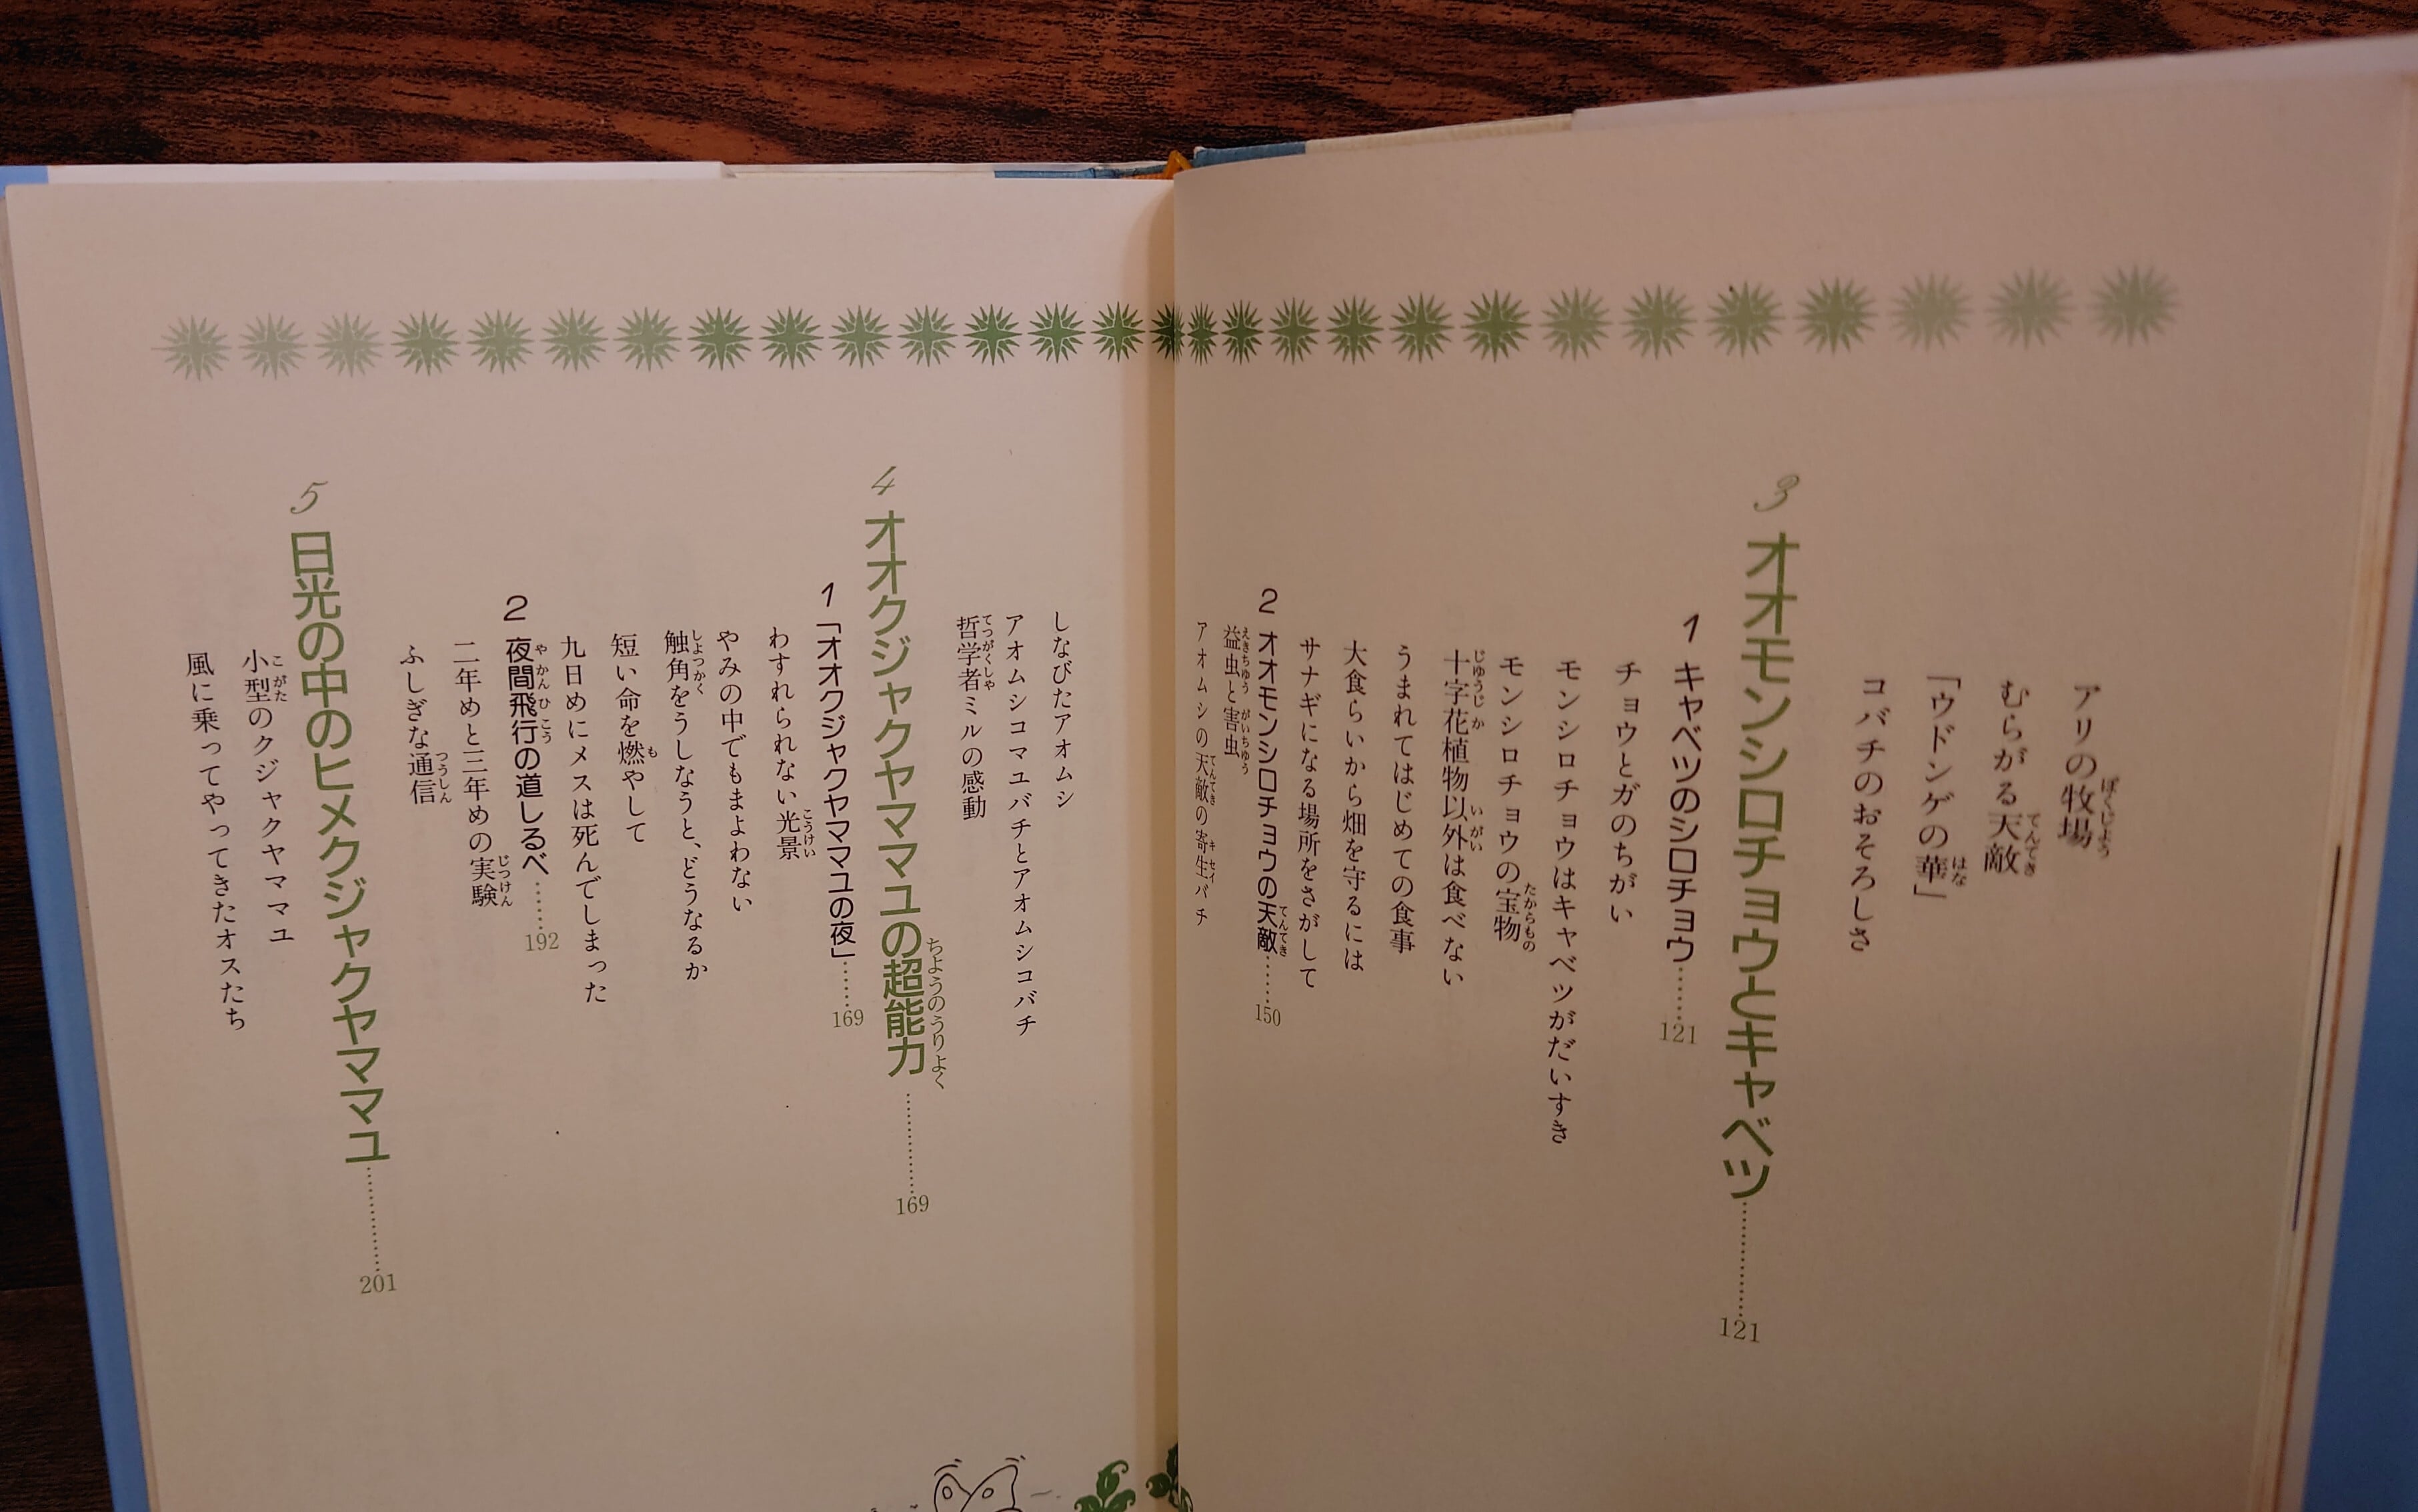 アリの牧場
むらがる天敵
「ウドンゲの華」
コバチのおそろしさ
3 オオモンシロチョウとキャベツ…………121
1 キャベツのシロチョウ……121
チョウとガのちがい
モンシロチョウはキャベツがだいすき
モンシロチョウの宝物
十字花植物以外は食べない
うまれてはじめての食事
大食らいから畑を守るには
サナギになる場所をさがして
2 オオモンシロチョウの天敵……150
益虫と害虫
アオムシの天敵の寄生バチ
しなびたアオムシ
アオムシコマユバチとアオムシコバチ
哲学者ミルの感動
4 オオクジャクヤママユの超能力…………169
1 「オオクジャクヤママユの夜」……169
わすれられない光景
やみの中でもまよわない
触角をうしなうと、どうなるか
短い命を燃やして
九日めにメスは死んでしまった
2 夜間飛行の道しるべ……192
二年めと三年めの実験
ふしぎな通信
5 日光の中のヒメクジャクヤママユ…………201
小型のクジャクヤママユ
風に乗ってやってきたオスたち